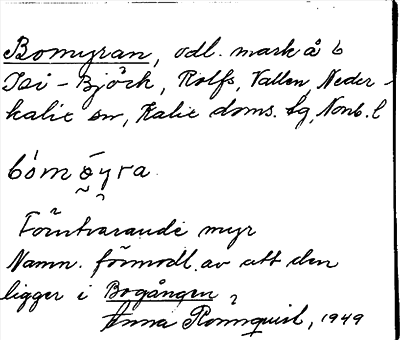 Bomyran, odl. mark å 6
Isi-Björk, Rolfs, Vallen, Neder-
kalix sn, Kalix doms. hg, Nonb. l
bómøyra
Förutvarande myr
Namn. förmodl. av att den
ligger i Bogången ?
Anna Rönnquist, 1949